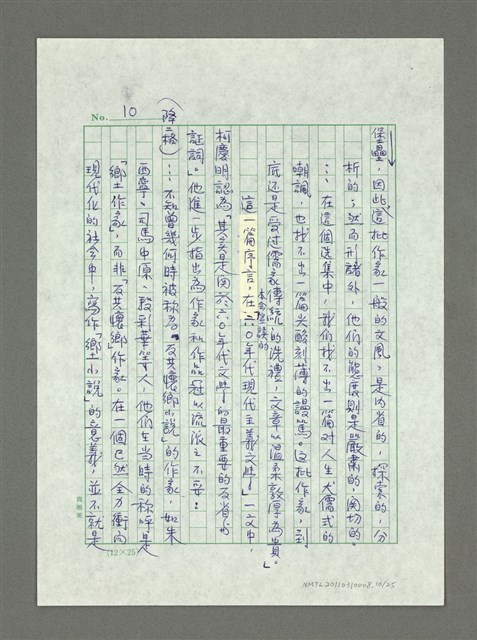 No. 10
堡壘，因此這批作家一般的文風，是內省的，探索的，分
析的；然而形諸外，他們的態度則是嚴肅的，關切的。
…在這個選集中，我們找不出一篇對人生犬儒式的
嘲諷，也找不出一篇尖酸刻薄的謾罵。這批作家，到
底還是受過儒家傳統的洗禮，文章以溫柔敦厚為貴。」
這一篇序言，在「六○年代現代主義文學」一文中，
本會座談的
柯慶明認為「其實是關於六○年代文學的最重要的反省與
証詞。」他進一步指出為作家和作品冠以流派之不妥：
（降二格）…不知曾幾何時被稱為「反共懷鄉小說」的作家，如朱
西甯、司馬中原、段彩華等人，他們在當時的稱呼是
「鄉土作家」，而非「反共懷鄉」作家。在一個已然全力衝向
現代化的社會中，寫作「鄉土小說」的意義，並不就是
(12×25)
NMTL20110310008_10/25